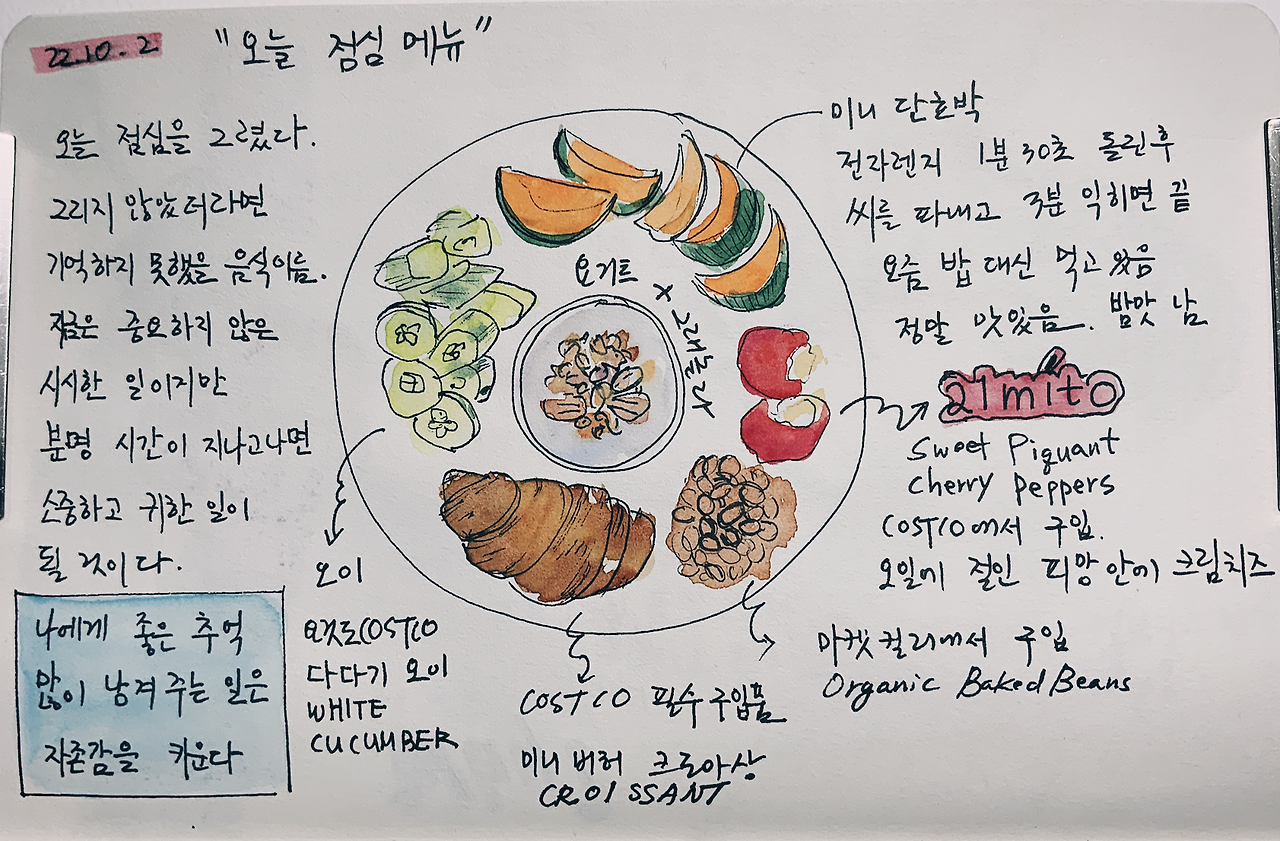 22.10.2
"오늘 점심 메뉴"
오늘 점심을 그렸다.
그리지 않았더라면
기억하지 못했을 음식이름.
지금은 중요하지 않은
시시한 일이지만
분명 시간이 지나고나면
소중하고 귀한 일이
될 것이다.
나에게 좋은 추억
많이 남겨 주는 일은
자존감을 키운다
미니 단호박
전자렌지 1분 30초 돌린후
씨를 파내고 3분 익히면 끝
요즘 밥 대신 먹고 있음
정말 맛있음. 밤맛 남
요거트
x 그래놀라
21mito
Sweet Piquant
Cherry Peppers
COSTCO에서 구입.
오일에 절인 피망안에 크림치즈
오이
요것도COSTCO
다다기 오이
WHITE
CUCUMBER
COSTCO 필수구입품
미니 버터 크로아상
CROISSANT
마켓컬리에서 구입
Organic Baked Beans